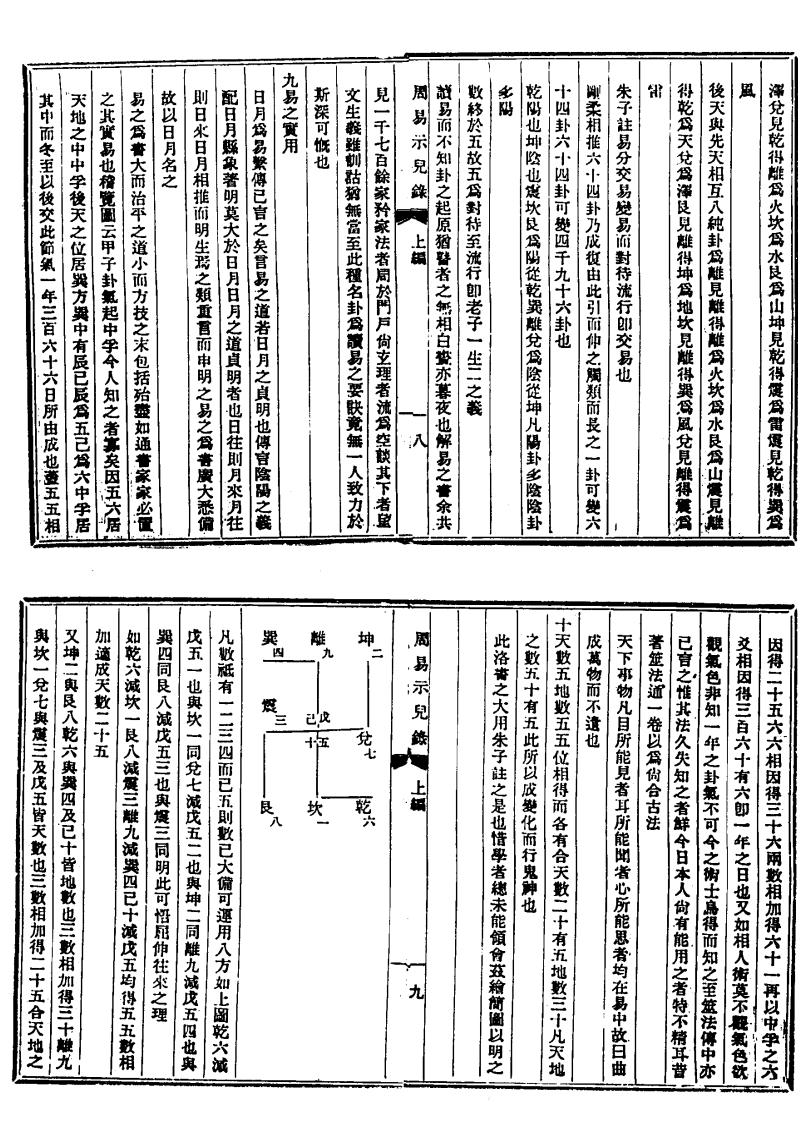 澤兌見乾得離爲火坎爲水艮爲山坤見乾得震爲雷震見乾得巽爲
風
後天與先天相互八純卦爲離見離得離爲火坎爲水艮爲山震見離
得乾爲天兌爲澤艮見離得坤爲地坎見離得巽爲風兌見離得震爲
雷
朱子註易分交易變易而對待流行卽交易也
剛柔相推六十四卦乃成復由此引而伸之觸類而長之一卦可變六
十四卦六十四卦可變四千九十六卦也
乾陽也坤陰也震坎艮爲陽從乾巽離兌爲陰從坤凡陽卦多陰陰卦
多陽
數終於五故五爲對待至流行卽老子一生二之義
讀易而不知卦之起原猶瞽者之無相白晝亦暮夜也解易之書余共
周易示兒錄 上編 一八
見一千七百餘家矜家法者局於門戶尙玄理者流爲空談其下者望
文生義雖訓詁猶無當至此種名卦爲讀易之要訣竟無一人致力於
斯深可慨也
九易之實用
日月爲易繫傳已言之矣言易之道若日月之貞明也傳言陰陽之義
配日月縣象著明莫大於日月日月之道貞明者也日往則月來月往
則日來日月相推而明生焉之類重言而申明之易之爲書廣大悉備
故以日月名之
易之爲書大而治平之道小而方技之末包括殆盡如通書家家必置
之其實易也稽覽圖云甲子卦氣起中孚今人知之者寡矣因五六居
天地之中中孚後天之位居巽方巽中有辰巳辰爲五巳爲六中孚居
其中而冬至以後交此節氣一年三百六十六日所由成也蓋五五相
因得二十五六六相因得三十六兩數相加得六十一再以中孚之六
爻相因得三百六十有六卽一年之日也又如相人術莫不觀氣色欲
觀氣色非知一年之卦氣不可今之術士烏得而知之至筮法傳中亦
已言之惟其法久失知之者鮮今日本人尙有能用之者特不精耳昔
著筮法通一卷以爲尙合古法
天下事物凡目所能見者耳所能聞者心所能思者均在易中故曰曲
成萬物而不遺也
十天數五地數五五位相得而各有合天數二十有五地數三十凡天地
之數五十有五此所以成變化而行鬼神也
此洛書之大用朱子註之是也惜學者總未能領會茲繪簡圖以明之
周易示兒錄 上編 一九
坤二
離九
巽四
兌七
戊五
己十
震三
乾六
坎一
艮八
凡數祗有一二三四而已五則數已大備可運用八方如上圖乾六減
戊五一也與坎一同兌七減戊五二也與坤二同離九減戊五四也與
巽四同艮八減戊五三也與震三同明此可悟屈伸往來之理
如乾六減坎一艮八減震三離九減巽四己十減戊五均得五五數相
加適成天數二十五
又坤二與艮八乾六與巽四及己十皆地數也三數相加得三十離九
與坎一兌七與震三及戊五皆天數也三數相加得二十五合天地之